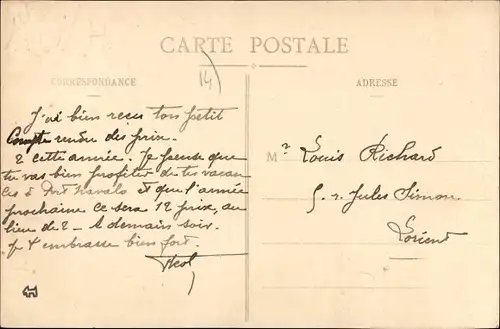 CARTE POSTALE
CORRESPONDANCE
ADRESSE
14
J'ai bien recu ton petit
Compte rendu des prix.
2 cette année. Je pense que
tu vas bien profiter de tes vacan
ces à Port Navalo et que l'année
prochaine ce sera 12 prix, au
lieu de 2 - A demain soir.
Je t'embrasse bien fort.
Mr Louis Richard
5. r. Jules Simon
Lorient